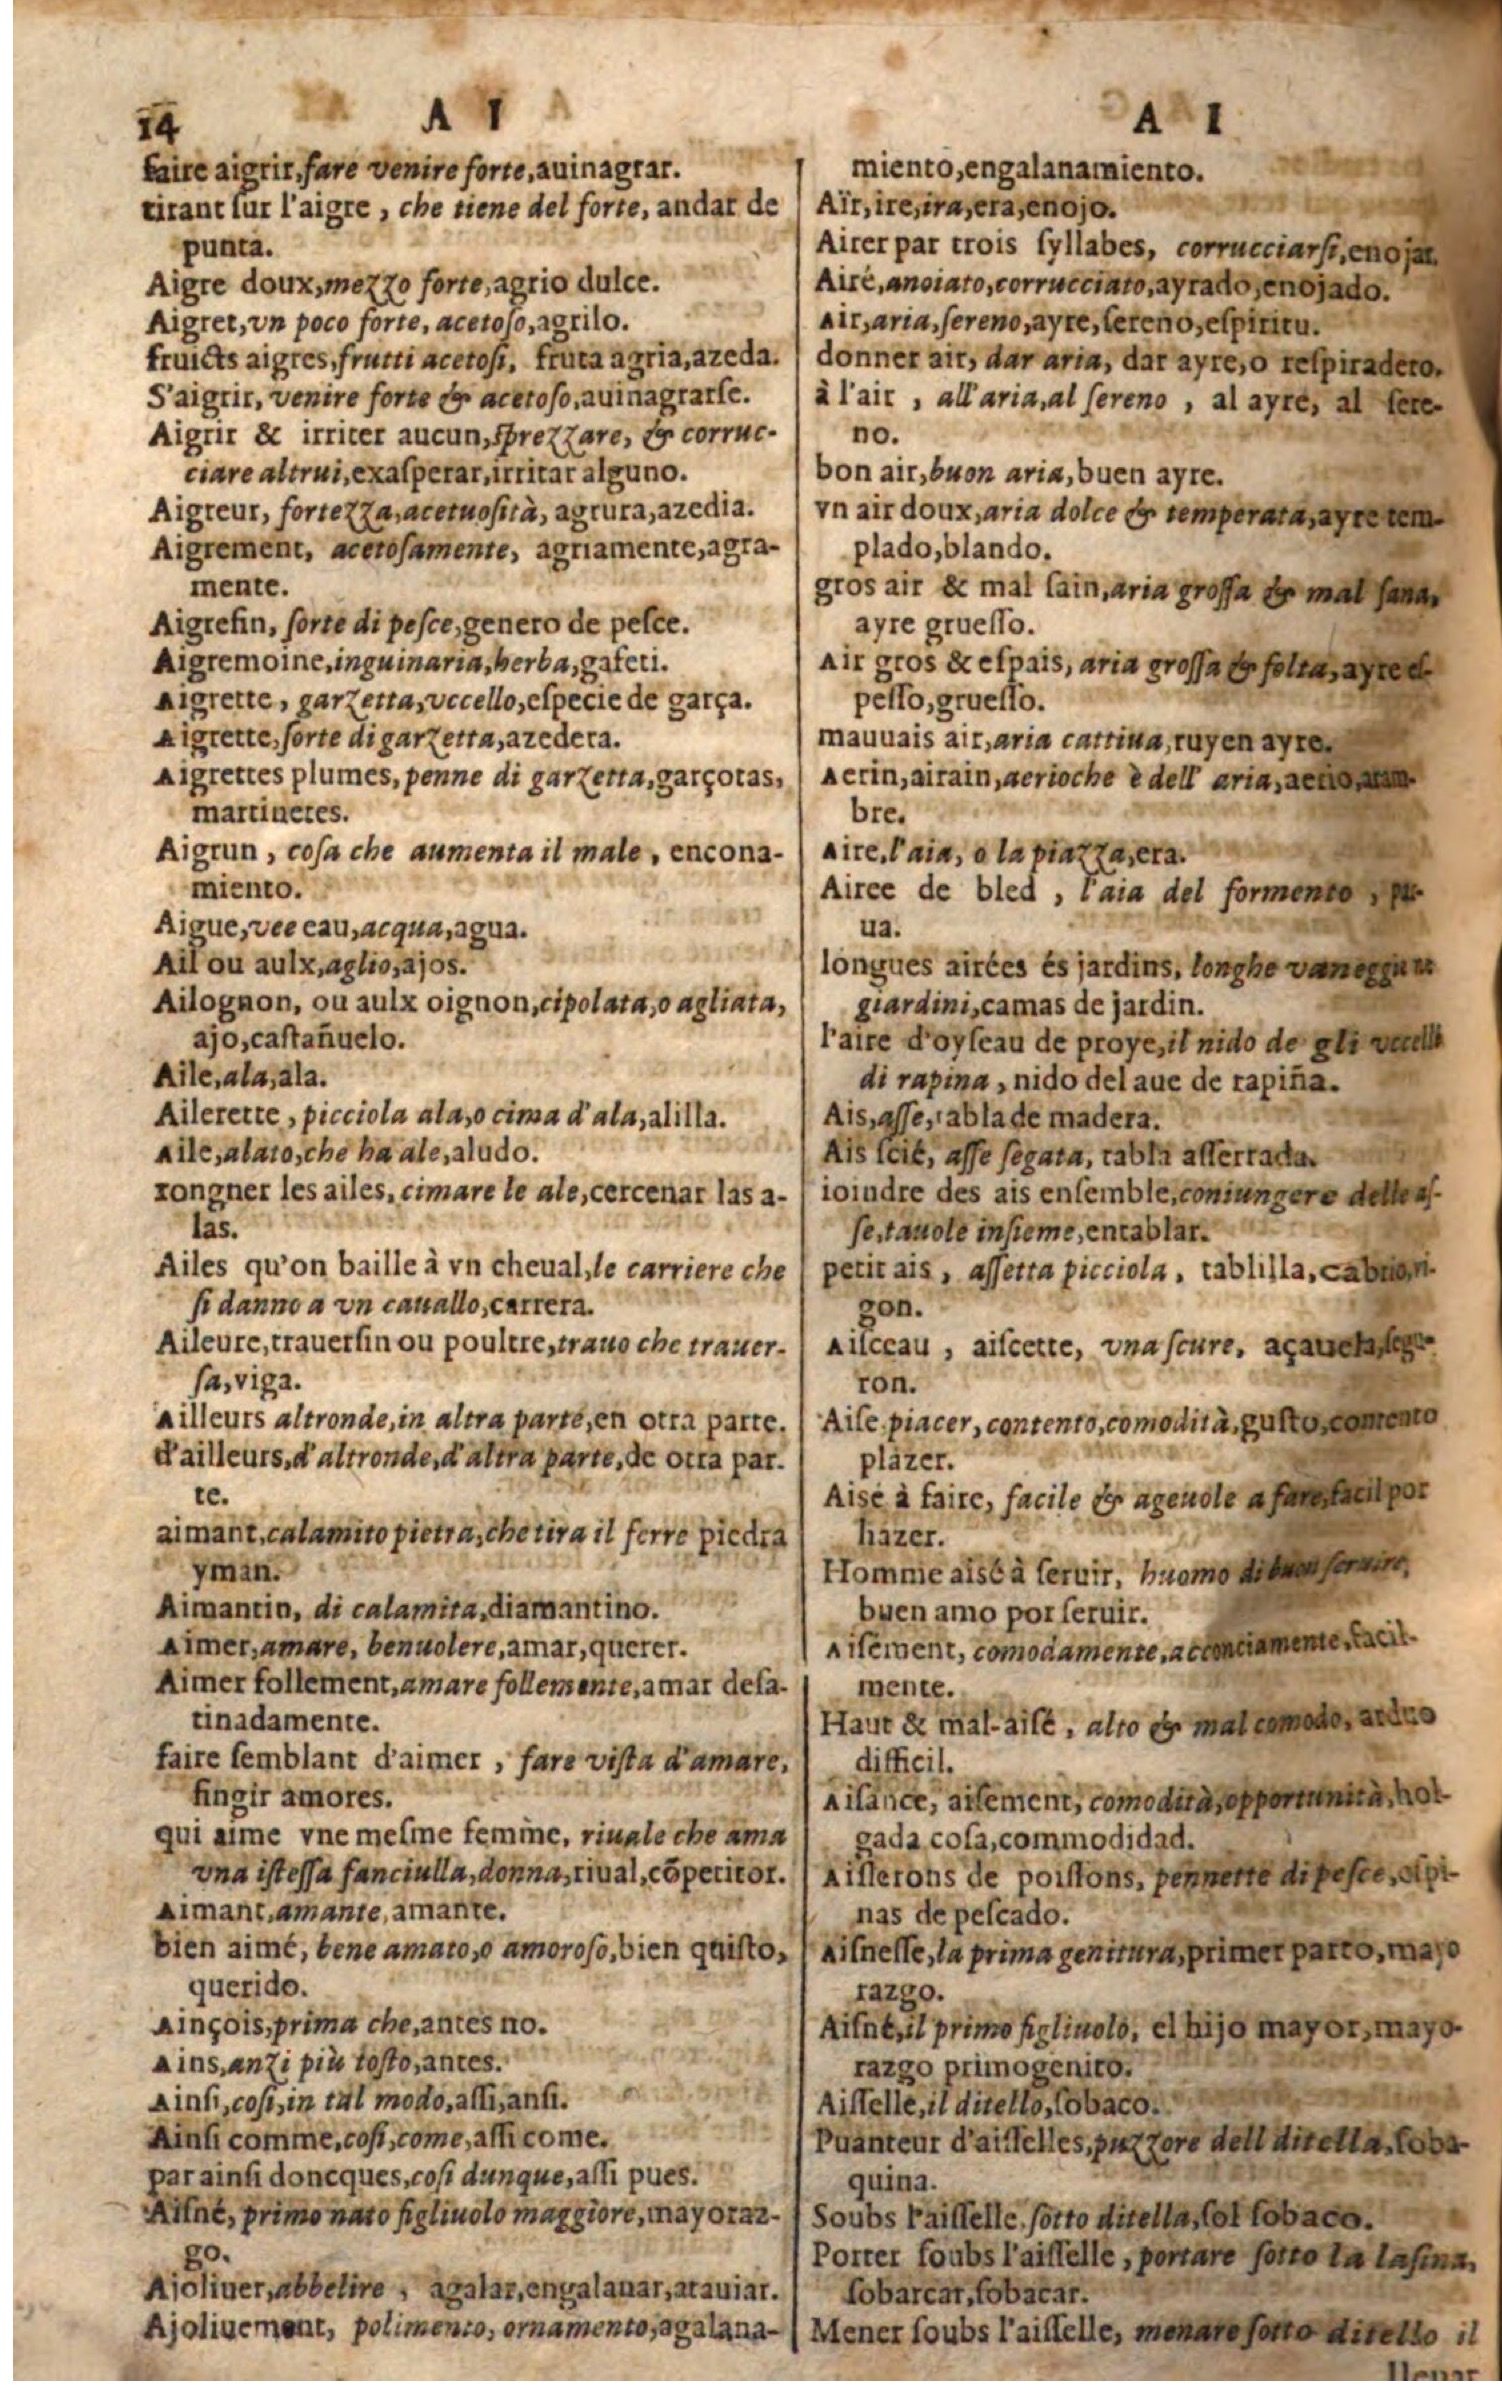 14
A I
faire aigrir, fare venire forte, auinagrar.
tirant ſur l'aigre, che tiene del forte, andar de
punta.
Aigre doux, mezzo forte, agrio dulce.
Aigret, vn poco forte, acetoſo, agrilo.
fruicts aigres, frutti acetoſi, fruta agria, azeda.
S'aigrir, venire forte & acetoſo, auinagrarſe.
Aigrir & irriter aucun, ſprezzare, & corruc-
ciare altrui, exaſperar, irritar alguno.
Aigreur, fortezza, acetuoſità, agrura, azedia.
Aigrement, acetoſamente, agriamente, agra-
mente.
Aigrefin, ſorte di peſce, genero de peſce.
Aigremoine, inguinaria, herba, gafeti.
Aigrette, garzetta, vccello, eſpecie de garça.
Aigrette, ſorte di garzetta, azedera.
Aigrettes plumes, penne di garzetta, garçotas,
martinetes.
Aigrun, coſa che aumenta il male, encona-
miento.
Aigue, vee eau, acqua, agua.
Ail ou aulx, aglio, ajos.
Ailognon, ou aulx oignon, cipolata, o agliata,
ajo, caſtañuelo.
Aile, ala, ala.
Ailerette, picciola ala, o cima d'ala, alilla.
Aile, alato, che ha ale, aludo.
rongner les ailes, cimare le ale, cercenar las a-
las.
Ailes qu'on baille à vn cheual, le carriere che
ſi danno a vn cauallo, carrera.
Aileure, trauerſin ou poultre, trauo che trauer-
ſa, viga.
Ailleurs altronde, in altra parte, en otra parte.
d'ailleurs, d'altronde, d'altra parte, de otra par.
te.
aimant, calamito pietra, che tira il ferre piedra
yman.
Aimantin, di calamita, diamantino.
Aimer, amare, benuolere, amar, querer.
Aimer follement, amare follemente, amar deſa-
tinadamente.
faire ſemblant d'aimer, fare viſta d'amare,
fingir amores.
qui aime vne meſme femme, riuale che ama
vna iſteſſa fanciulla, donna, riual, cōpetitor.
Aimant, amante, amante.
bien aimé, bene amato, o amoroſo, bien quiſto,
querido.
Ainçois, prima che, antes no.
Ains, anzi più toſto, antes.
Ainſi, coſi, in tal modo, aſſi, anſi.
Ainſi comme, coſi, come, aſſi come.
par ainſi doncques, coſi dunque, aſſi pues.
Aiſné, primo nato figliuolo maggiore, mayoraz-
go.
Ajoliuer, abbelire, agalar, engalanar, atauiar.
Ajoliuement, polimento, ornamento, agalana-
A I
miento, engalanamiento.
Aïr, ire, ira, era, enojo.
Airer par trois ſyllabes, corrucciarſi, enojar.
Airé, anoiato, corrucciato, ayrado, enojado.
Air, aria, ſereno, ayre, ſereno, eſpiritu.
donner air, dar aria, dar ayre, o reſpiradero.
à l'air, all'aria, al ſereno, al ayre, al ſere-
no.
bon air, buon aria, buen ayre.
vn air doux, aria dolce & temperata, ayre tem-
plado, blando.
gros air & mal ſain, aria groſſa & mal ſana,
ayre grueſſo.
Air gros & eſpais, aria groſſa & folta, ayre eſ-
peſſo, grueſſo.
mauuais air, aria cattiua, ruyen ayre.
Aerin, airain, aerioche è dell' aria, aerio, aram-
bre.
Aire, l'aia, o la piazza, era.
Airee de bled, l'aia del formento, par-
ua.
longues airées és jardins, longhe
giardini, camas de jardin.
l'aire d'oyſeau de proye, il nido de gli vccelli
di rapina, nido del aue de rapiña.
Ais, aſſe, tabla de madera.
Ais ſcié, aſſe ſegata, tabla aſſerrada.
ioindre des ais enſemble, coniungere delle aſ-
ſe, tauole inſieme, entablar.
petit ais, aſſetta picciola, tablilla, cabrio, ri-
gon.
Aiſceau, aiſcette, vna ſcure, açauela, ſegu-
ron.
Aiſe piacer, contento, comodità, guſto, contento
plazer.
Aisé à faire, facile & ageuole a fare, facil por
hazer.
Homme aisé à ſeruir, huomo di buon ſeruire,
buen amo por ſeruir.
Aiſément, comodamente, acconciamente, facil-
mente.
Haut & mal-aiſé, alto & mal comodo, arduo
difficil.
Aiſance, aiſement, comodità, opportunità, hol-
gada coſa, commodidad.
Aiſſerons de poiſſons, pennette di peſce, eſpi-
nas de peſcado.
Aiſneſſe, la prima genitura, primer parto, mayo
razgo.
Aiſné, il primo figliuolo, el hijo mayor, mayo-
razgo primogenito.
Aiſſelle, il ditello, ſobaco.
Puanteur d'aiſſelles, puzzore dell ditella, ſoba-
quina.
Soubs l'aiſſelle, ſotto ditella, ſol ſobaco.
Porter ſoubs l'aiſſelle, portare ſotto la laſina,
ſobarcar, ſobacar.
Mener ſoubs l'aiſſelle, menare ſotto ditello il
lleuar